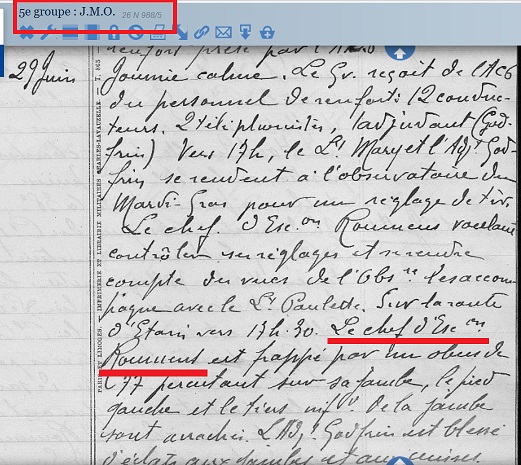 5e groupe : J.M.O. 26 N 988/5
renfort prêté par l'
29 Juin Journée calme. Le Gr. reçoit de l'AC6
du personnel de renfort: 12 conduc-
teurs. 2 téléphonistes, 1 adjudant (God-
frin) Vers 17h, le Lt Mary et l'Adjt God-
frin se rendent à l'observatoire du
Mardi-Gras pour un réglage de tir.
Le chef. d'Esc.on Roumens voulant
contrôler ses réglages et se rendre
compte des vues de l'Obs.re les accom-
pagne avec le Lt Paulette. Sur la route
d'Etain vers 17h.30. Le chef d'Esc.on
Roumens est frappé par un obus de
77 percutant sur sa jambe, le pied
gauche et le tiers inf.r de la jambe
sont arrachés. L'Adjt. Godfrin est blessé
d'éclats aux jambes et aux cuisses.
PARIS ET LIMOGES. IMPRIMERIE ET LIBRAIRIE MILITAIRES CHARLES-LAVAUZELLE